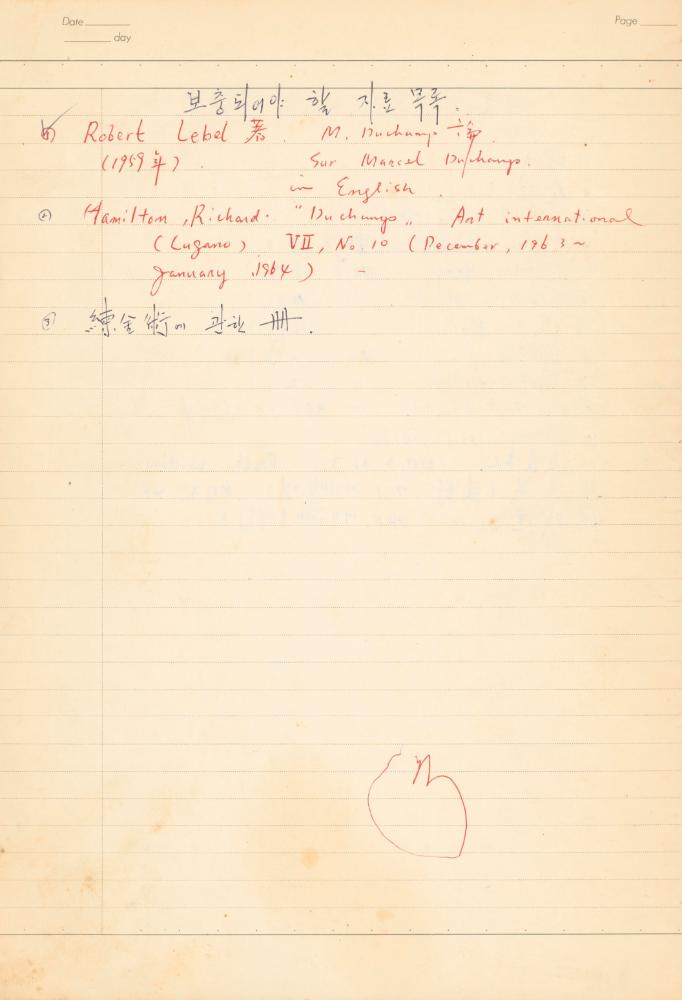 Date
day
Page
보충되어야 할 자료 목록.
① Robert Lebel 著. M. Duchamp 論
(1959年). Sur Marcel Duchamp.
in English.
② Hamilton, Richard. "Duchamp" Art international
(Lugano) VII, No. 10 (December, 1963 ~
January, 1964) -
③ 鍊金術에 관한 冊.